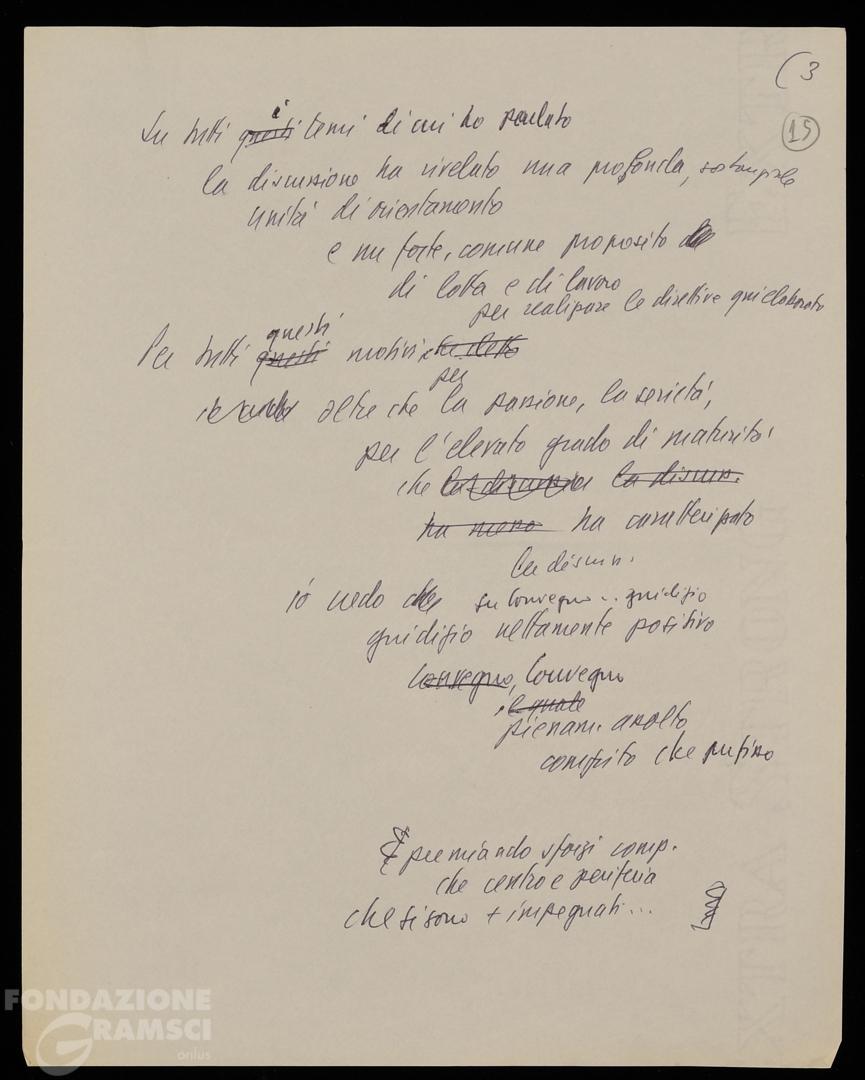 (3
15
Su tutti questi i temi di cui ho parlato
la discussione ha rivelato una profonda, sostanziale
unità di orientamento
e un forte, comune proposito
di lotta e di lavoro
per realizzare le direttive qui elaborate
questi
Per tutti questi motivi, ho detto
per
oltre che la passione, la serietà,
per l'elevato grado di maturità
che la discussione la discuss.
ha messo ha caratterizzato
la discuss.
io credo che su convegno .. giudizio
giudizio nettamente positivo
Convegno, Convegno
il quale
pienam. assolto
compito che prefisso
E premiando sforzi comp.
che centro e periferia
che si sono + impegnati...
FONDAZIONE
GRAMSCI
onlus